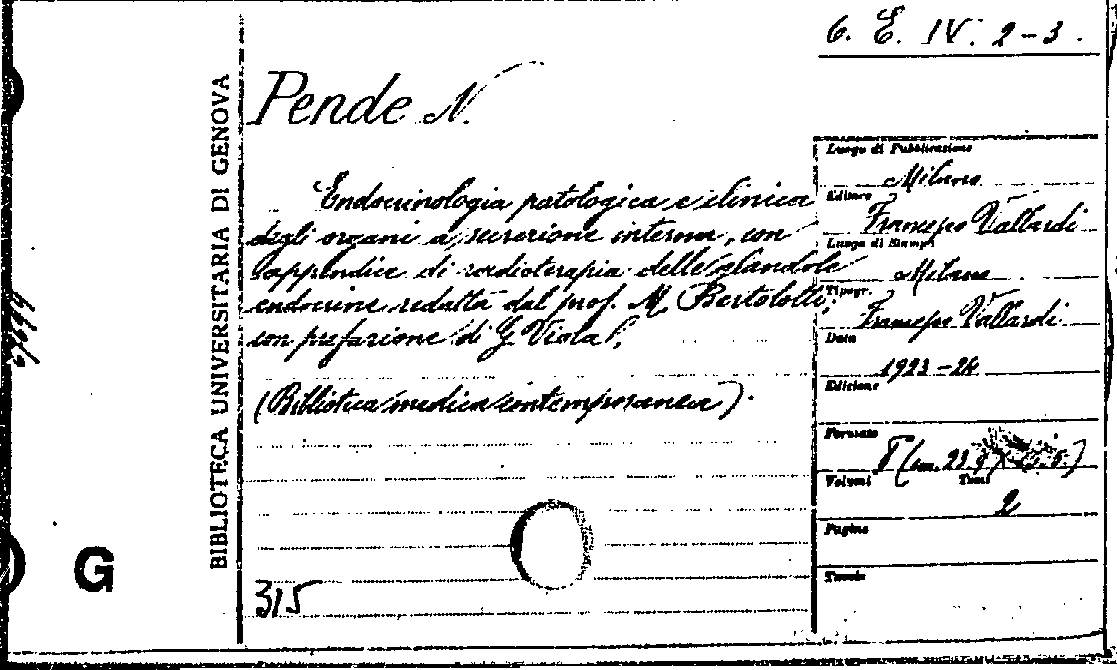 6. E. IV. 2-3.
BIBLIOTECA UNIVERSITARIA DI GENOVA
Pende N.
Endocrinologia patologica e clinica
degli organi a secrezione interna, con
appendice di radioterapia delle glandole
endocrine redatta dal prof. M. Bertolotti;
con prefazione di G. Viola.
(Biblioteca medica contemporanea).
315
G
Luogo di Pubblicazione
Milano
Editore
Francesco Vallardi
Luogo di Stampa
Milano
Tipogr.
Francesco Vallardi
Data
1923-24
Edizione
Formato
8 (cm.
Volumi Tomi
2
Pagine
Tavole